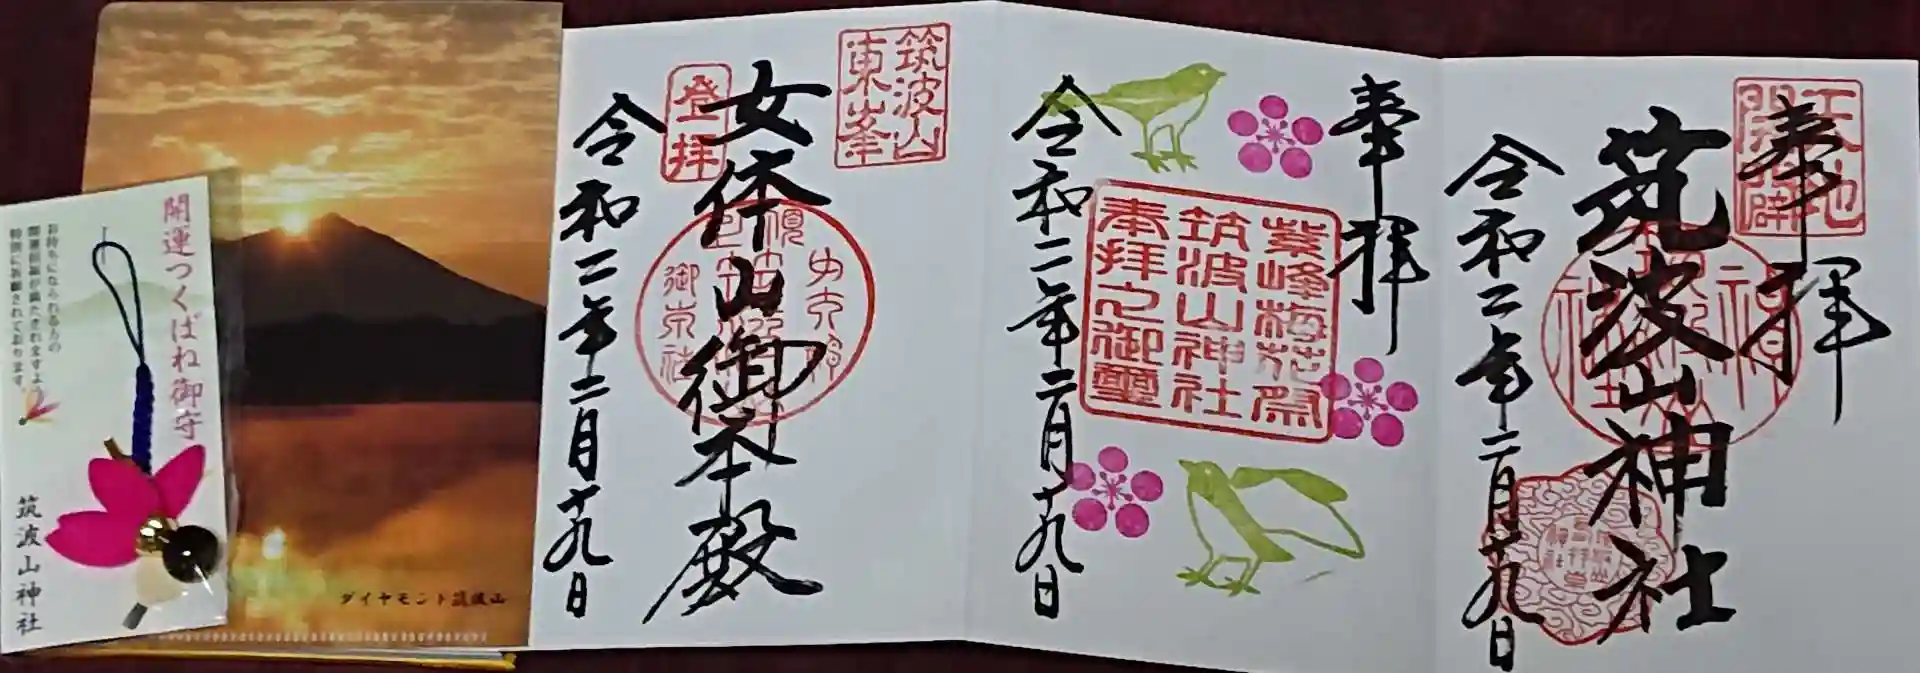 開運つくばね御守
お持ちになられる方の
開運招福が満たされますよう
特別に祈願されております。
筑波山神社
ダイヤモンド筑波山
筑波山
東峯
登拝
女体山御本殿
御朱社
令和二年二月十九日
奉拝
紫峰梅花祭
筑波山神社
奉拝之御璽
令和二年二月十九日
天地
開闢
奉拝
筑波山神社
令和二年二月十九日